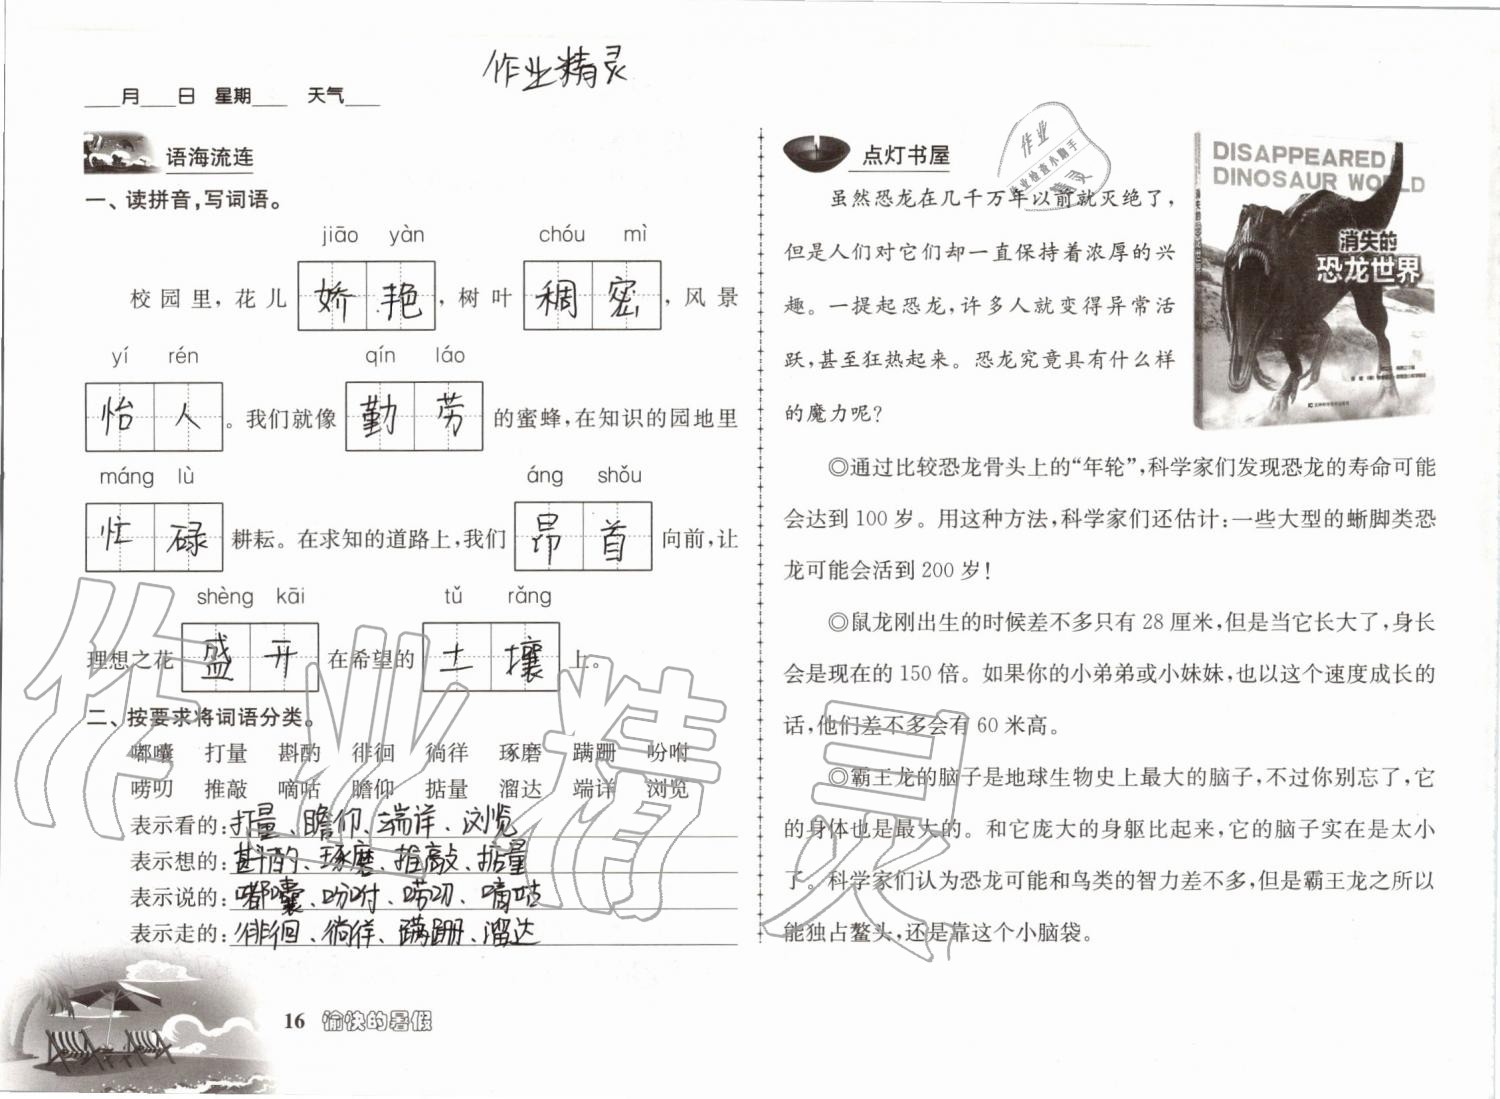 作业精灵
____月____日 星期____ 天气____
语海流连
一、读拼音,写词语。
jiāo yàn chóu mì
校园里,花儿 娇艳 ,树叶 稠密 ,风景
yí rén qín láo
怡人 。我们就像 勤劳 的蜜蜂,在知识的园地里
máng lù áng shǒu
忙碌 耕耘。在求知的道路上,我们 昂首 向前,让
shèng kāi tǔ rǎng
理想之花 盛开 在希望的 土壤 上。
二、按要求将词语分类。
嘟囔 打量 斟酌 徘徊 徜徉 琢磨 蹒跚 吩咐
唠叨 推敲 嘀咕 瞻仰 掂量 溜达 端详 浏览
表示看的:打量、瞻仰、端详、浏览
表示想的:斟酌、琢磨、推敲、掂量
表示说的:嘟囔、吩咐、唠叨、嘀咕
表示走的:徘徊、徜徉、蹒跚、溜达
16 愉快的暑假
点灯书屋
作业
作业检查小助手
精灵
DISAPPEARED
DINOSAUR WORLD
消失的
恐龙世界
虽然恐龙在几千万年以前就灭绝了,
但是人们对它们却一直保持着浓厚的兴
趣。一提起恐龙,许多人就变得异常活
跃,甚至狂热起来。恐龙究竟具有什么样
的魔力呢?
◎通过比较恐龙骨头上的“年轮”,科学家们发现恐龙的寿命可能
会达到 100 岁。用这种方法,科学家们还估计:一些大型的蜥脚类恐
龙可能会活到 200 岁!
◎鼠龙刚出生的时候差不多只有 28 厘米,但是当它长大了,身长
会是现在的 150 倍。如果你的小弟弟或小妹妹,也以这个速度成长的
话,他们差不多会有 60 米高。
◎霸王龙的脑子是地球生物史上最大的脑子,不过你别忘了,它
的身体也是最大的。和它庞大的身躯比起来,它的脑子实在是太小
了。科学家们认为恐龙可能和鸟类的智力差不多,但是霸王龙之所以
能独占鳌头,还是靠这个小脑袋。
作业精灵